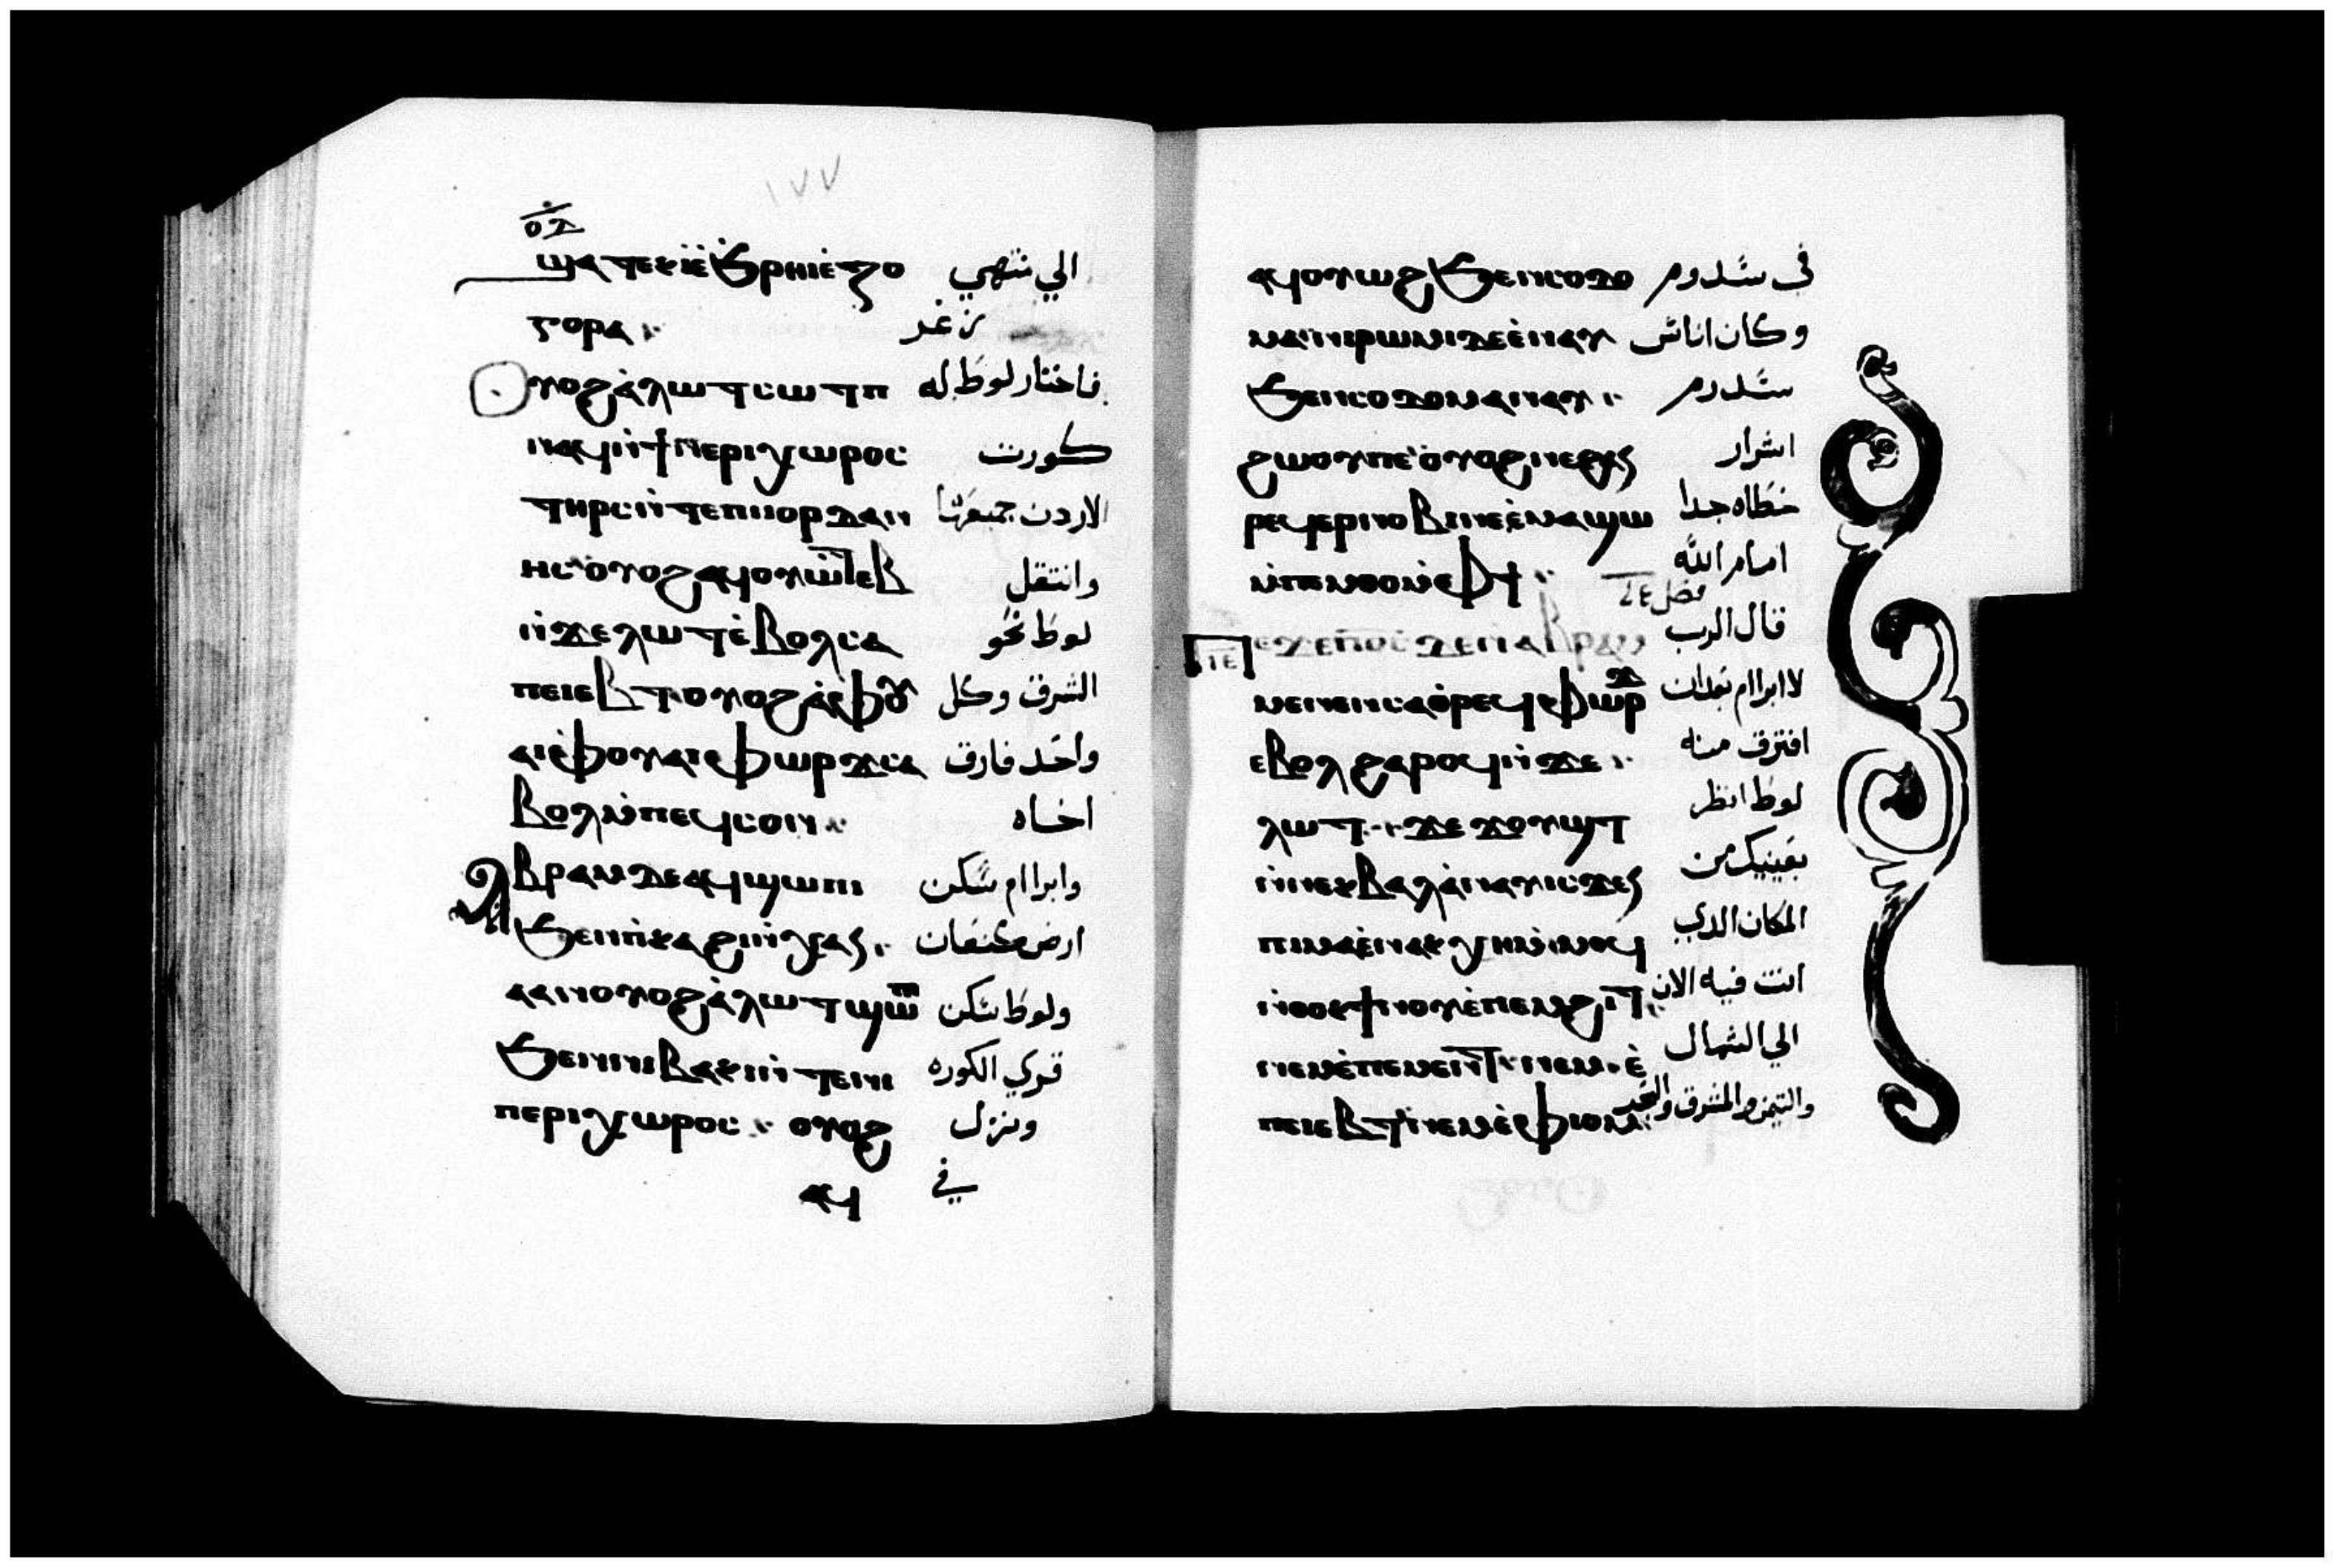 ١٧٧
ⲟⲇ
ϣⲁⲧⲉⲕⲓ̀ⲉ̀ϧⲣⲏⲓⲉ̀ⲍⲟ الي تنتهي
ⲅⲟⲣⲁ زغر
ⲟⲩⲟϩⲁ̀ⲗⲱⲧⲥⲱⲧⲡ فاختار لوط له
ⲛⲁϥⲛ̀ϯⲡⲉⲣⲓⲭⲱⲣⲟⲥ كورت
ⲧⲏⲣⲥⲛ̀ⲧⲉⲡⲓⲓⲟⲣⲇⲁⲛ الاردن جميعها
ⲏⲥ ⲟⲩⲟϩⲁϥⲟⲩⲱⲧⲉⲃ وانتقل
ⲛ̀ϫⲉⲗⲱⲧⲉ̀ⲃⲟⲗⲥⲁ لوط نحو
ⲡⲉⲓⲉⲃⲧⲟⲩⲟϩⲁ̀ⲫⲟⲩ الشرق وكل
ⲁⲓⲉ̀ⲫⲟⲩⲁⲓⲫⲱⲣϫⲥⲁ واحد فارق
ⲃⲟⲗⲙ̀ⲡⲉϥⲥⲟⲛ اخاه
ⲁⲃⲣⲁⲙⲇⲉⲁϥϣⲱⲡⲓ وابراام سكن
ϧⲉⲛⲡ̀ⲕⲁϩⲓⲛ̀ⲭⲁⲥ ارض كنعان
ⲁⲁⲛⲟⲩⲟϩⲁ̀ⲗⲱⲧϣⲱⲡⲓ ولوط سكن
ϧⲉⲛⲛⲓⲃⲁⲕⲓⲛ̀ⲧⲉⲛⲓ قري الكوره
ⲡⲉⲣⲓⲭⲱⲣⲟⲥ ⲟⲩⲟϩ ونزل
ⲁϥ في
ⲁϥⲟⲩⲱϩϧⲉⲛⲥⲟⲇⲟ في سدوم
ⲙⲁⲛⲓⲣⲱⲙⲓⲇⲉⲉ̀ⲛⲁⲩ وكان اناس
ϧⲉⲛⲥⲟⲇⲟⲙⲁⲛⲁⲩ سدوم
ϩⲱⲟⲩⲡⲉ ⲟⲩⲟϩⲛⲉϩⲁⲛ اشرار
ⲣⲉϥⲉⲣⲛⲟⲃⲓⲛⲉⲉ̀ⲙⲁϣⲱ خطاه جدا
ⲙ̀ⲡⲉⲙⲑⲟⲙ̀ⲫϯ امام الله
فصل ٤٦
ⲡⲉϫⲉⲡⲟ̅ⲥ̅ⲇⲉⲛ̀ⲁⲃⲣⲁⲙ قال الرب
ⲓⲉ
ⲙⲉⲛⲉⲛⲥⲁⲑⲣⲉϥⲫⲱⲣϫ لابراام بعدان
ⲉⲃⲟⲗϩⲁⲣⲟϥⲛ̀ϫⲉ افترق منه
ⲗⲱⲧ ϫⲉ ϫⲟⲩϣⲧ لوط انظر
ⲛ̀ⲛⲉⲕⲃⲁⲗⲁ̀ⲛⲁⲩⲓⲥϫⲉⲛ بعينيك من
ⲡⲓⲙⲁⲉ̀ⲛⲁⲕⲭⲏⲙ̀ⲙⲟϥ المكان الدي
ⲛ̀ⲑⲟⲕϯⲛⲟⲩⲉ̀ⲡⲉⲙϩⲓⲧ انت فيه الان
ⲛⲉⲙⲉ̀ⲡⲉⲙⲉⲛⲧ ⲛⲉⲙ ⲉ̀ الي الشمال
ⲡⲉⲓⲉⲃⲧⲛⲉⲙⲉ̀ⲫⲓⲟⲙ والتيمن والمشرق والبحر